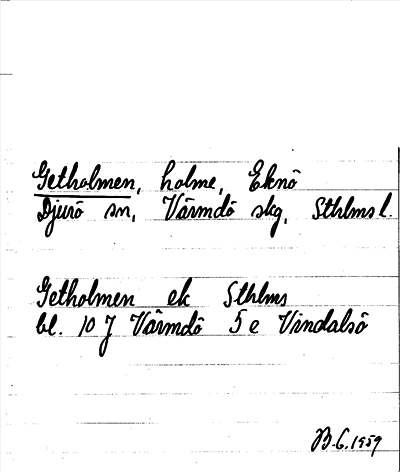 Getholmen, holme, Eknö
Djurö sn, Värmdö skg, Sthlms l.
Getholmen ek Sthlms
bl. 10 J Värmdö 5 e Vindalsö
B.C. 1959